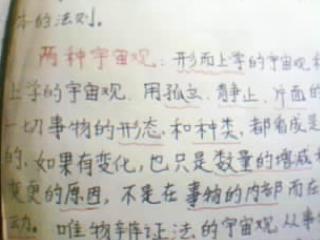 本的法则。
两种宇宙观：形而上学的宇宙观和
上学的宇宙观．用孤立．静止．片面的
一切事物的形态．和种类．都看成是
的．如果有变化，也只是数量的增减和
变更的原因，不是在事物的内部而在
动。唯物辩证法的宇宙观从事